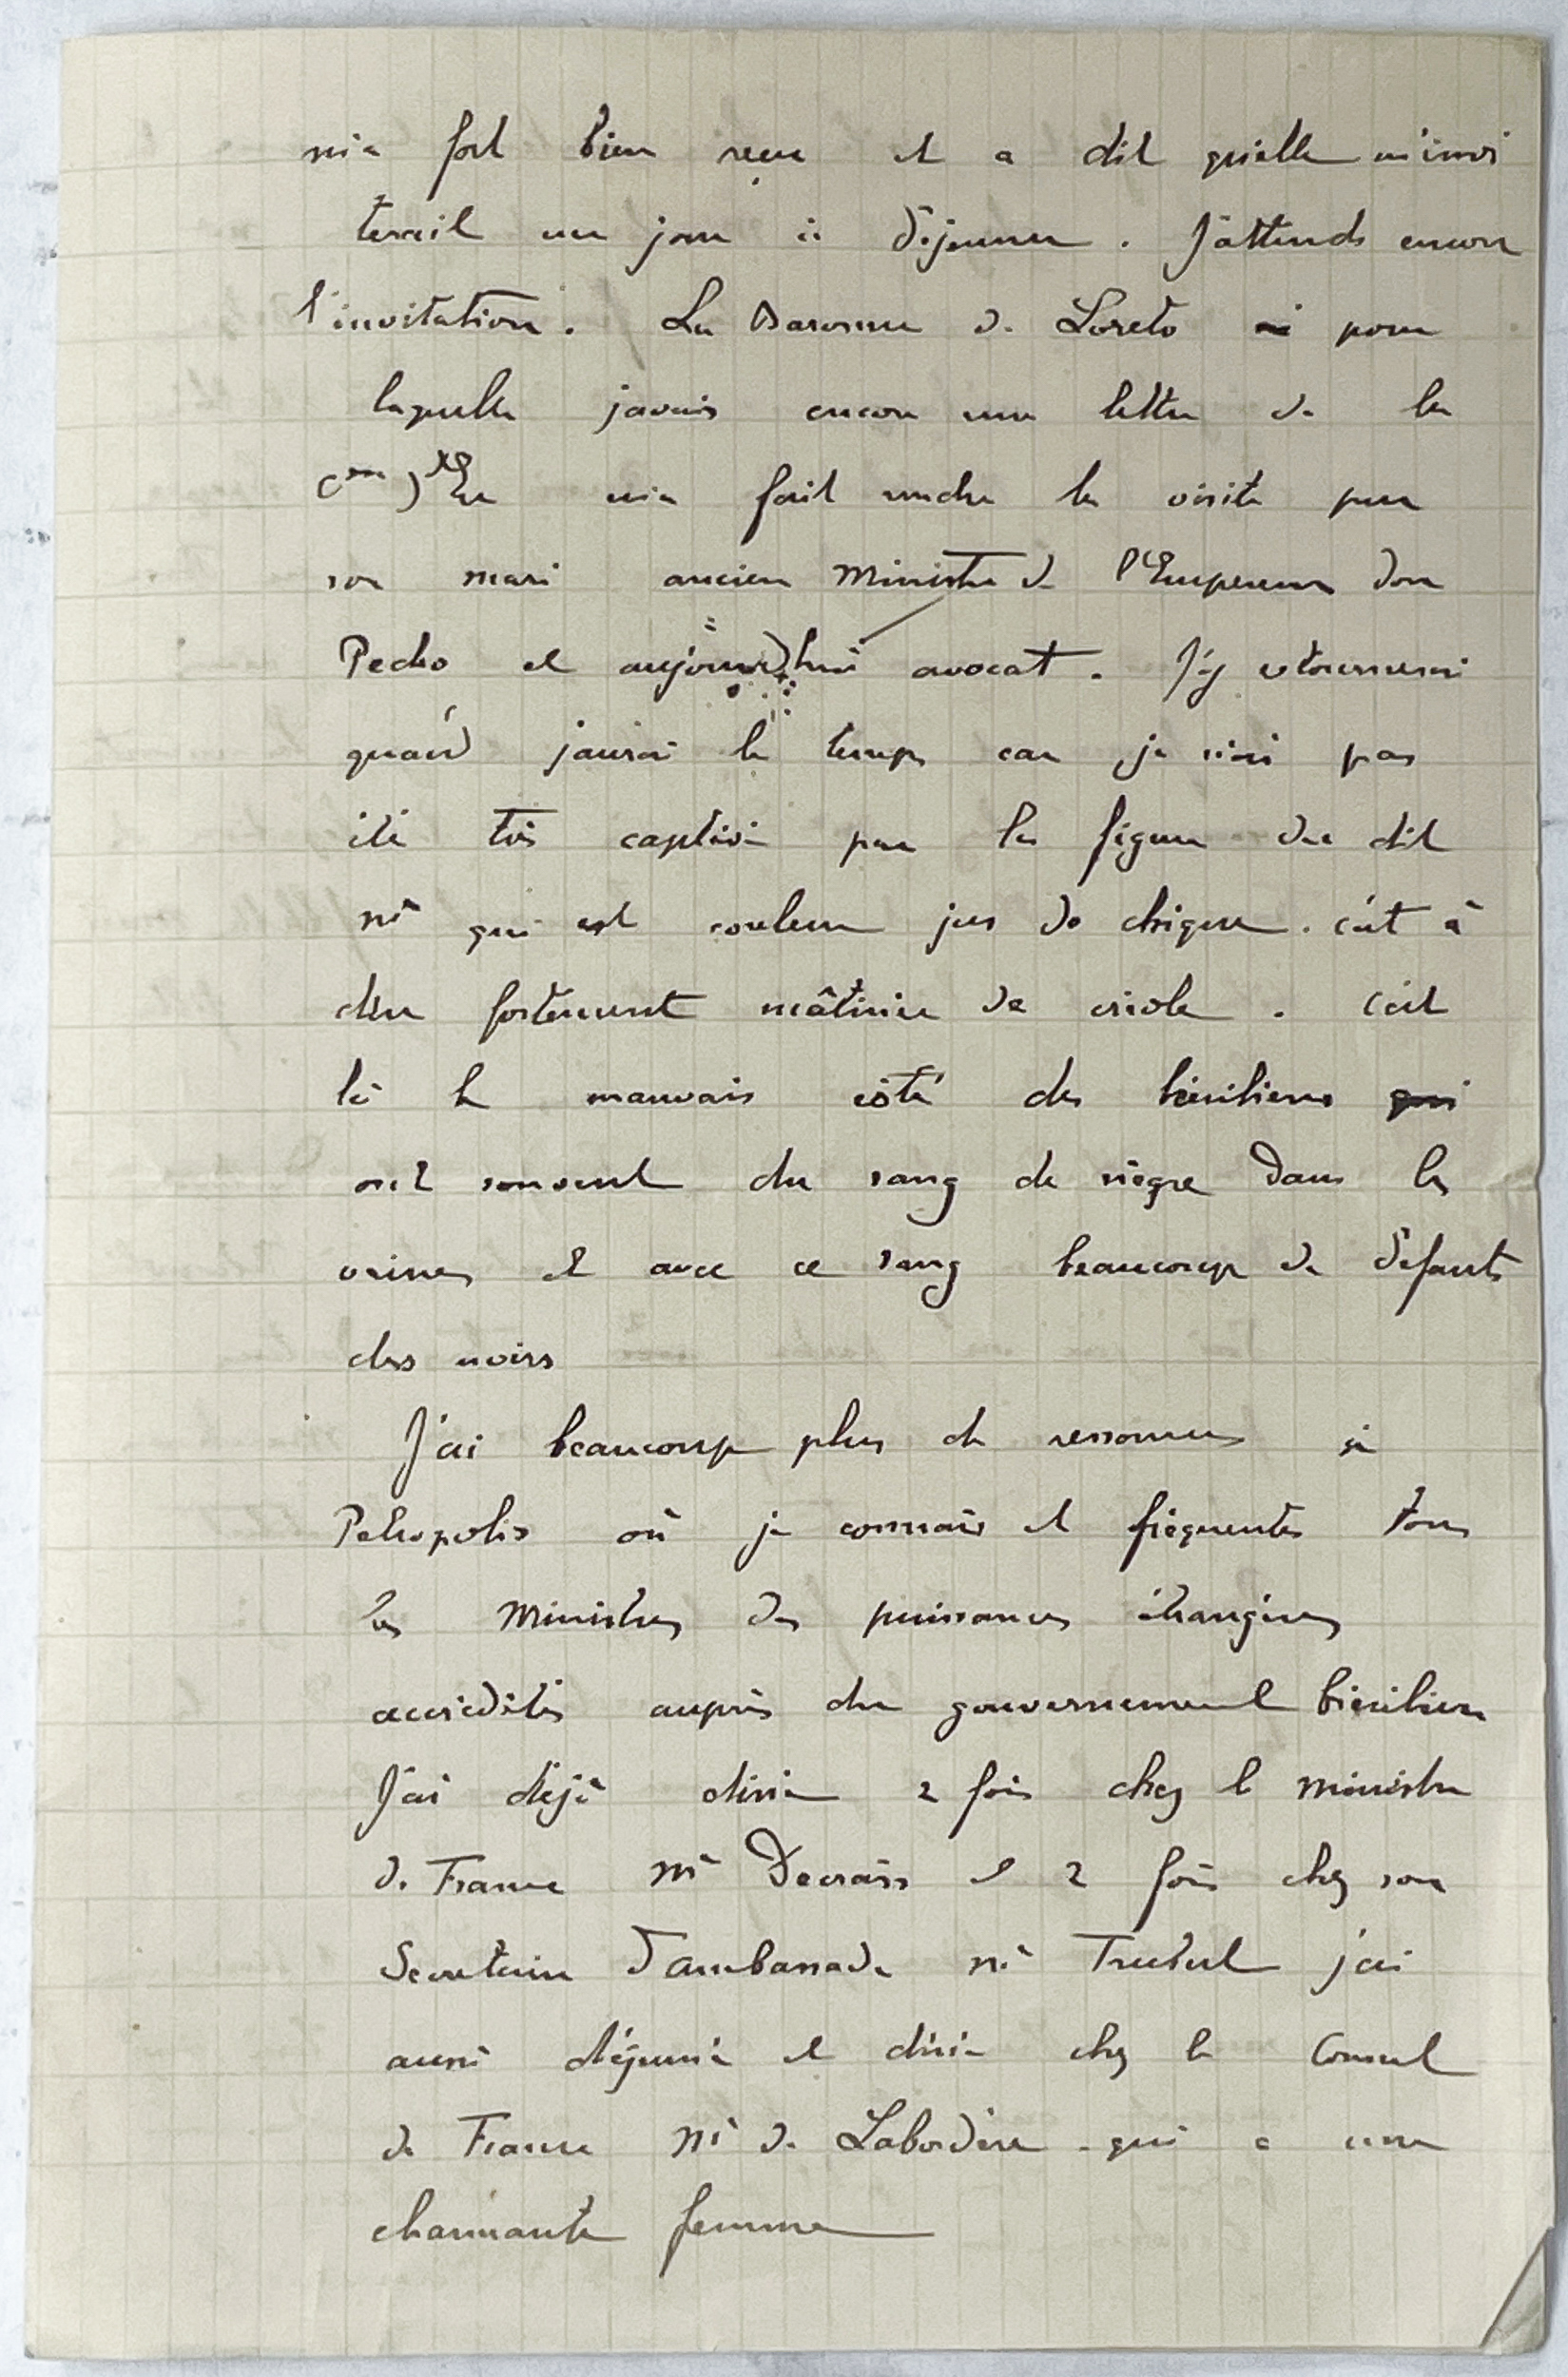 m'a fort bien reçu et a dit qu'elle m'invi
terait un jour à déjeuner. J'attends encore
l'invitation. La Baronne de Loreto pour
laquelle j'avais encore une lettre de la
Ctesse d'Eu m'a fait rendre la visite par
son mari ancien Ministre de l'Empereur don
Pedro et aujourd'hui avocat. J'y retournerai
quand j'aurai le temps car je n'ai pas
été très captivé par la figure du dit
Mr qui est couleur jus de chique. c'est à
dire fortement mâtinée de créole. C'est
là le mauvais côté des brésiliens qui
ont souvent du sang de nègre dans les
veines et avec ce sang beaucoup de défauts
des noirs
J'ai beaucoup plus de ressources à
Petropolis où je connais et fréquente tous
les Ministres des puissances étrangères
accrédités auprès du gouvernement brésilien
J'ai déjà diné 2 fois chez le ministre
de France Mr Decrais et 2 fois chez son
Secretaire d'ambassade Mr j'ai
aussi déjeuné et diné chez le Consul
de France Mr de Labordère qui a une
charmante femme